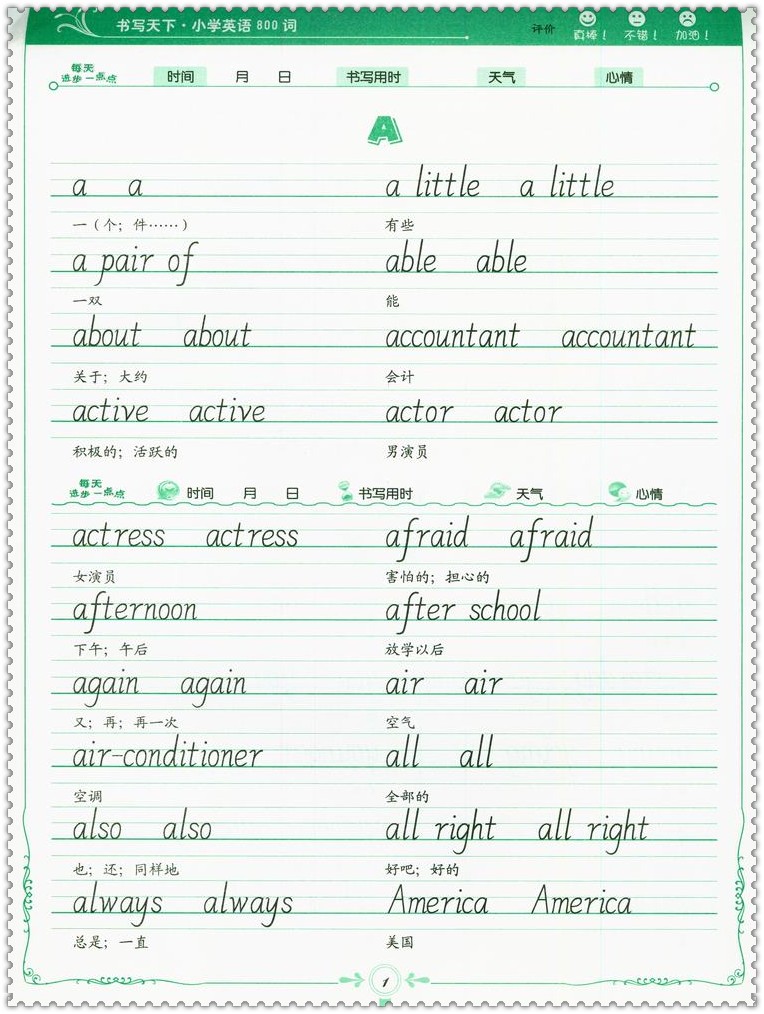 书写天下·小学英语 800 词
评价 真棒! 不错! 加油!
每天
进步一点点 时间 月 日 书写用时 天气 心情
A
a a a little a little
一(个;件……) 有些
a pair of able able
一双 能
about about accountant accountant
关于;大约 会计
active active actor actor
积极的;活跃的 男演员
每天
进步一点点 时间 月 日 书写用时 天气 心情
actress actress afraid afraid
女演员 害怕的;担心的
afternoon after school
下午;午后 放学以后
again again air air
又;再;再一次 空气
air-conditioner all all
空调 全部的
also also all right all right
也;还;同样地 好吧;好的
always always America America
总是;一直 美国
1